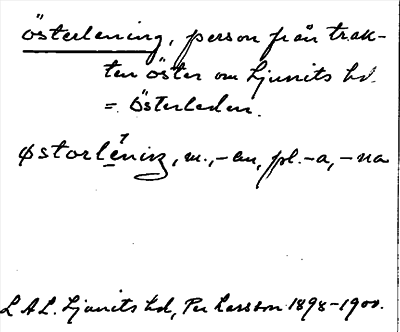 österlening, person från trak-
ten öster om Ljunits hd.
= Österleden.
østorlēniɳ, m., -en, pl. -a, -na
L A L. Ljunits hd, Per Larsson 1898-1900.